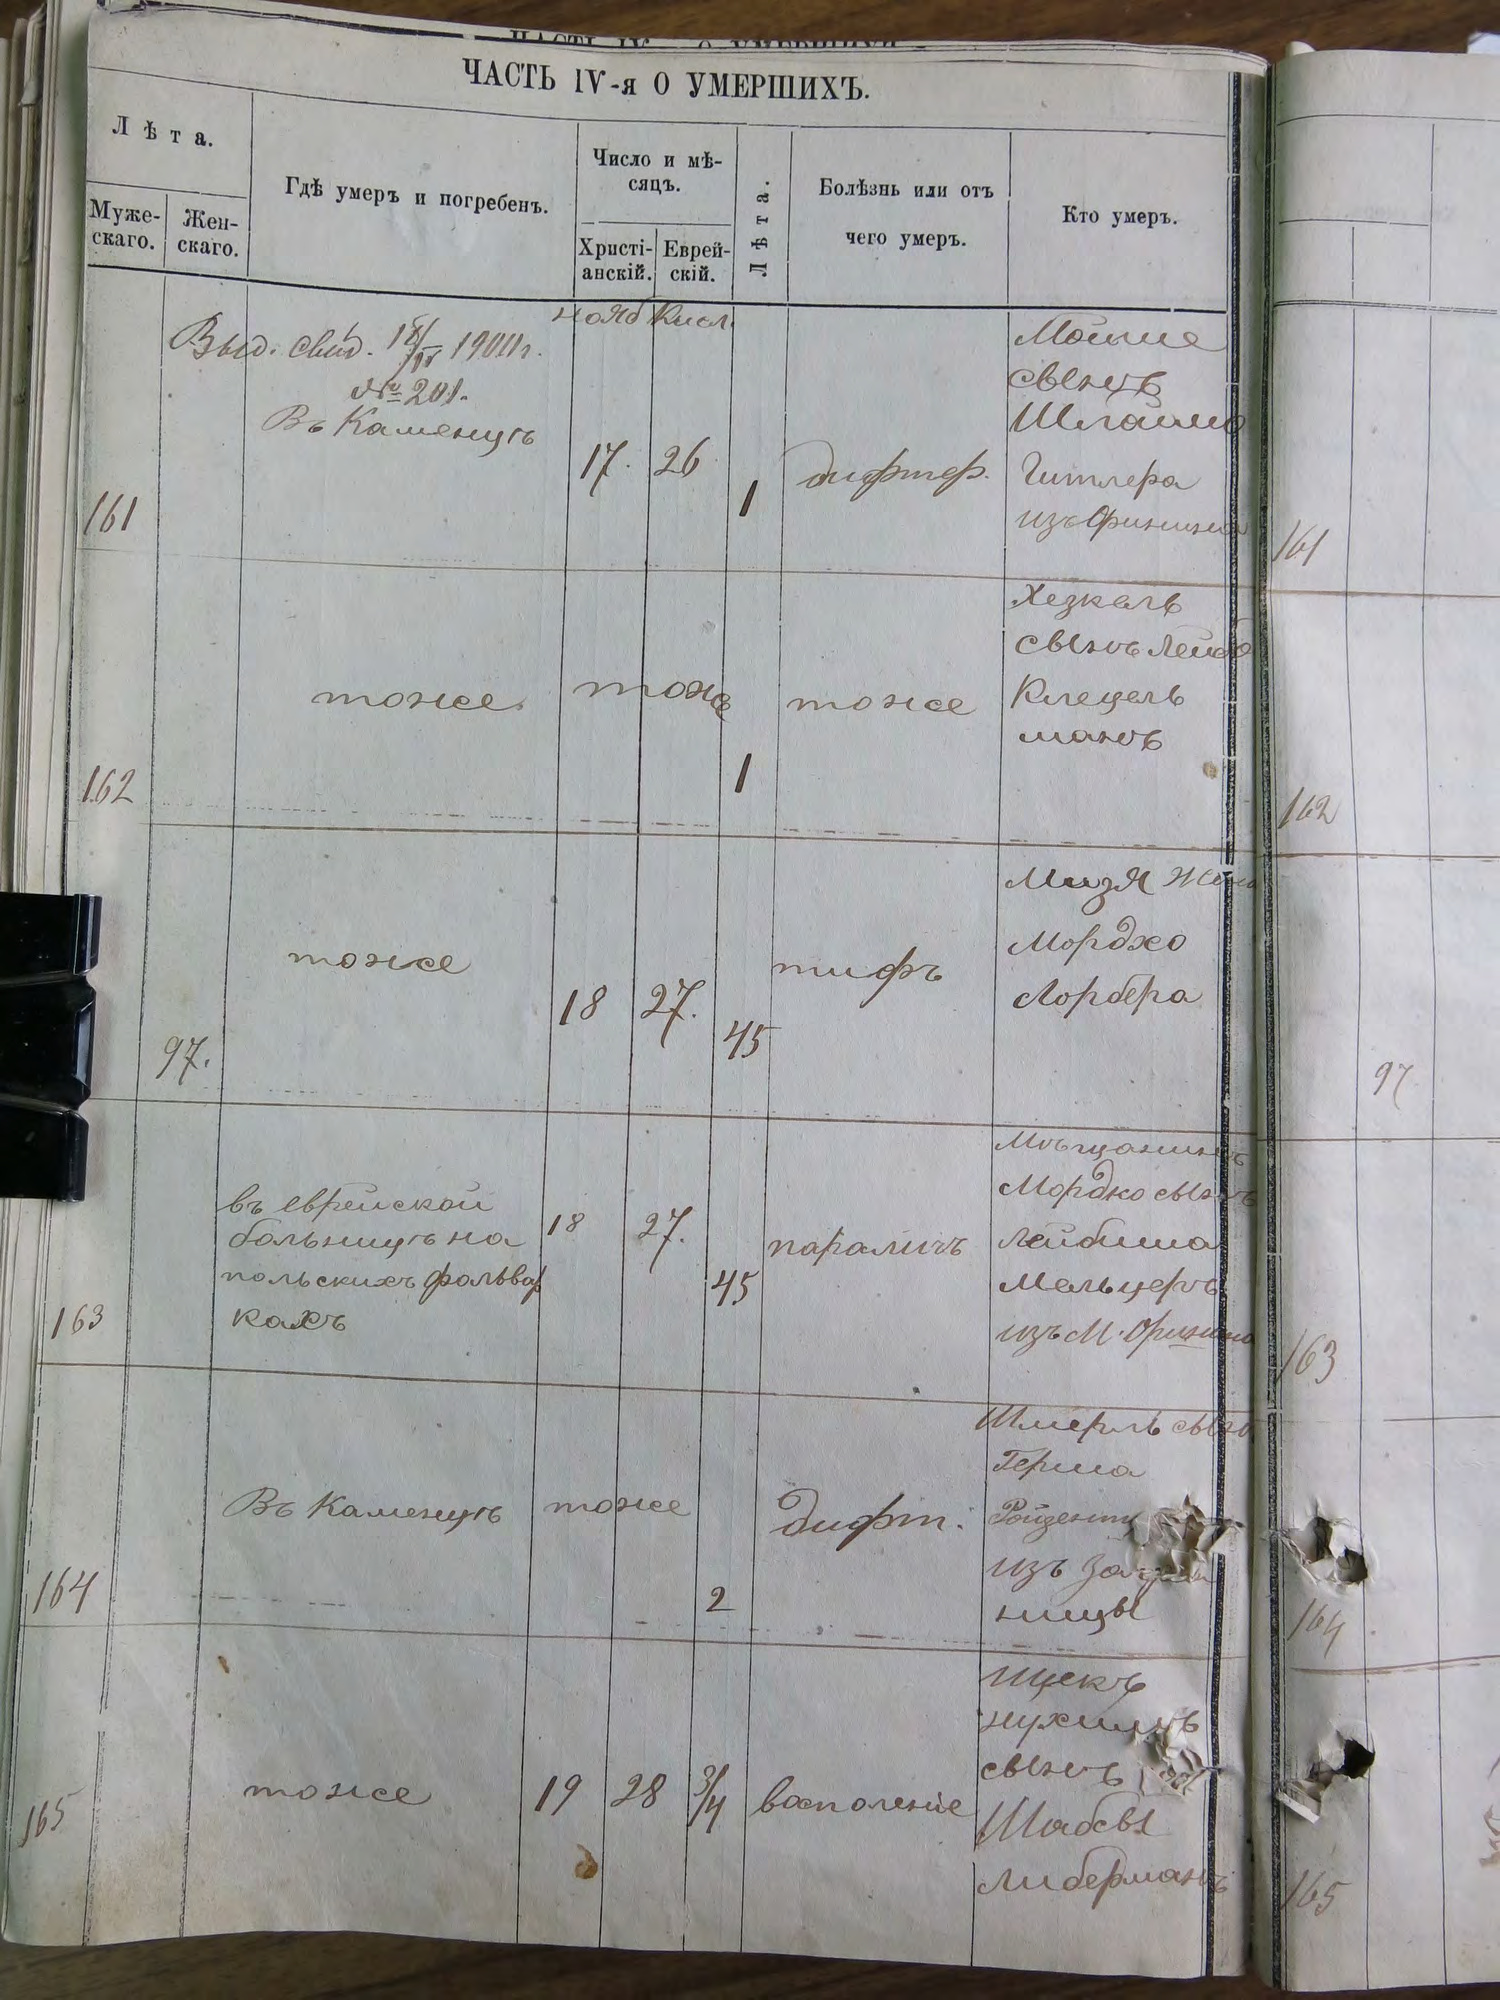 ЧАСТЬ IV-я О УМЕРШИХЪ.
Лѣта.
Муже-
скаго.
Жен-
скаго.
Гдѣ умеръ и погребенъ.
Число и мѣ-
сяцъ.
Христі-
анскій.
Еврей-
скій.
Лѣта.
Болѣзнь или отъ
чего умеръ.
Кто умеръ.
нояб Кисл.
Выд. свид. 1900 г.
№ 201.
161
Въ Каменцѣ
17. 26
1
дифтер.
Мойше
сынъ
Шлоймо
Гитлера
изъ Оринина
161
162
тоже
тоже
1
тоже
Хезкель
сынъ Лейбо
Клецель
манъ
162
97.
тоже
18 27.
45
тифъ
Мизя жена
Мордхо
Лорбера
97
163
въ еврейской
больницѣ на
польскихъ фольвар
кахъ
18 27.
45
параличъ
Мѣщанинъ
Мордко сынъ
Лейбиша
Мельцеръ
изъ М. Оринино
163
164
Въ Каменцѣ
тоже
2
дифт.
Шмерль сынъ
Герша
изъ
ницы
164
165
тоже
19 28 3/4
восполеніе
Ицекъ
Нухимъ
сынъ
Шабсы
Либерманъ
165